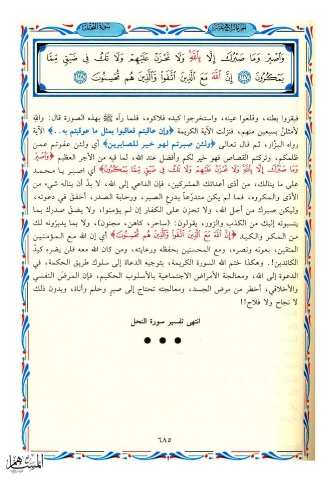 سورة النحل
وَاصْبِرْ وَمَا صَبْرُكَ إِلَّا بِاللَّهِ وَلَا تَحْزَنْ عَلَيْهِمْ وَلَا تَكُ فِي ضَيْقٍ مِّمَّا
يَمْكُرُونَ ﴿١٢٧﴾ إِنَّ اللَّهَ مَعَ الَّذِينَ اتَّقَوا وَّالَّذِينَ هُم مُّحْسِنُونَ ﴿١٢٨﴾
فبقروا بطنه، وقلعوا عينه، واستخرجوا كبده فلاكوه، فلما رآه ﷺ بهذه الصورة قال: والله
لأمثلنَّ بسبعين منهم، فنزلت الآية الكريمة ﴿وإن عاقبتم فعاقبوا بمثل ما عوقبتم به..﴾ الآية
رواه البزار، ثم قال تعالى ﴿ولئن صبرتم لهو خير للصابرين﴾ أي ولئن عفوتم عمن
ظلمكم، وتركتم القصاص فهو خير لكم وأفضل عند الله، لما فيه من الأجر العظيم ﴿وَاصْبِرْ
وَمَا صَبْرُكَ إِلَّا بِاللَّهِ وَلَا تَحْزَنْ عَلَيْهِمْ وَلَا تَكُ فِي ضَيْقٍ مِّمَّا يَمْكُرُونَ﴾ أي اصبر يا محمد
على ما ينالك، من أذى أعدائك المشركين، فإن الداعي إلى الله، لا بدَّ أن يناله شيء من
الأذى والمكروه، فما لم يكن متدرعاً بدرع الصبر، ورحابة الصدر، أخفق في دعوته،
وليكن صبرك من أجل الله، ولا تحزن على الكفار إن لم يؤمنوا، ولا يضق صدرك بما
ينسبونه إليك من الكذب والزور، بقولون: (ساحر، كاهن، مجنون)، ولا بما يدبرونه لك
من المكر والكيد ﴿إِنَّ اللَّهَ مَعَ الَّذِينَ اتَّقَوا وَّالَّذِينَ هُم مُّحْسِنُونَ﴾ أي إن الله مع المؤمنين
المتقين، بعونه ونصره، ومع المحسنين بحفظه ورعايته، ومن كان الله معه فلن يضره كيدُ
الكائدين!. وهكذا ختم الله السورة الكريمة، بتوجيه الدعاة إلى سلوك طريق الحكمة، في
الدعوة إلى الله، ومعالجة الأمراض الاجتماعية بالأسلوب الحكيم، فإن المرض النفسي
والأخلاقي، أخطر من مرض الجسد، ومعالجته تحتاج إلى صبر وحلم وأناة، وبدون ذلك
لا نجاح ولا فلاح!!
انتهى تفسير سورة النحل
٦٨٥